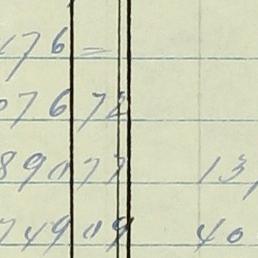 176 =
07672
89077 13,
74909 40